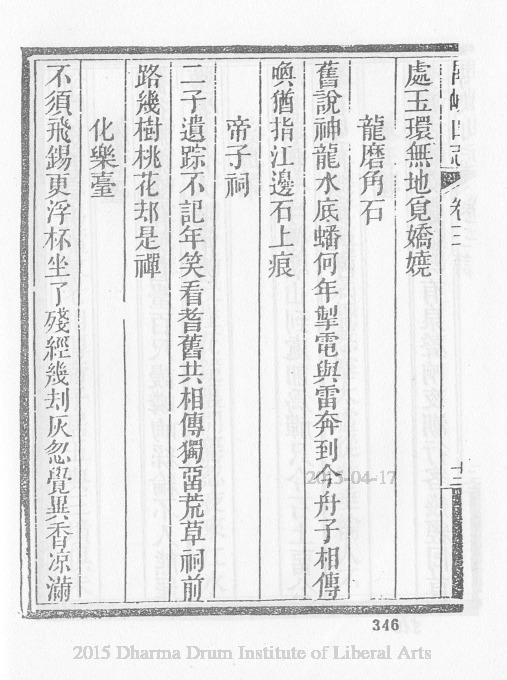 處玉環無地覓嬌嬈
龍磨角石
舊說神龍水底蟠何年掣電與雷奔到今舟子相傳
喚猶指江邊石上痕
帝子祠
二子遺踪不記年笑看耆舊共相傳獨畱荒草祠前
路幾樹桃花却是禪
化樂臺
不須飛錫更浮杯坐了殘經幾刦灰忽覺異香凉滿
卷三
十二
2015-04-17
346
2015 Dharma Drum Institute of Liberal Arts